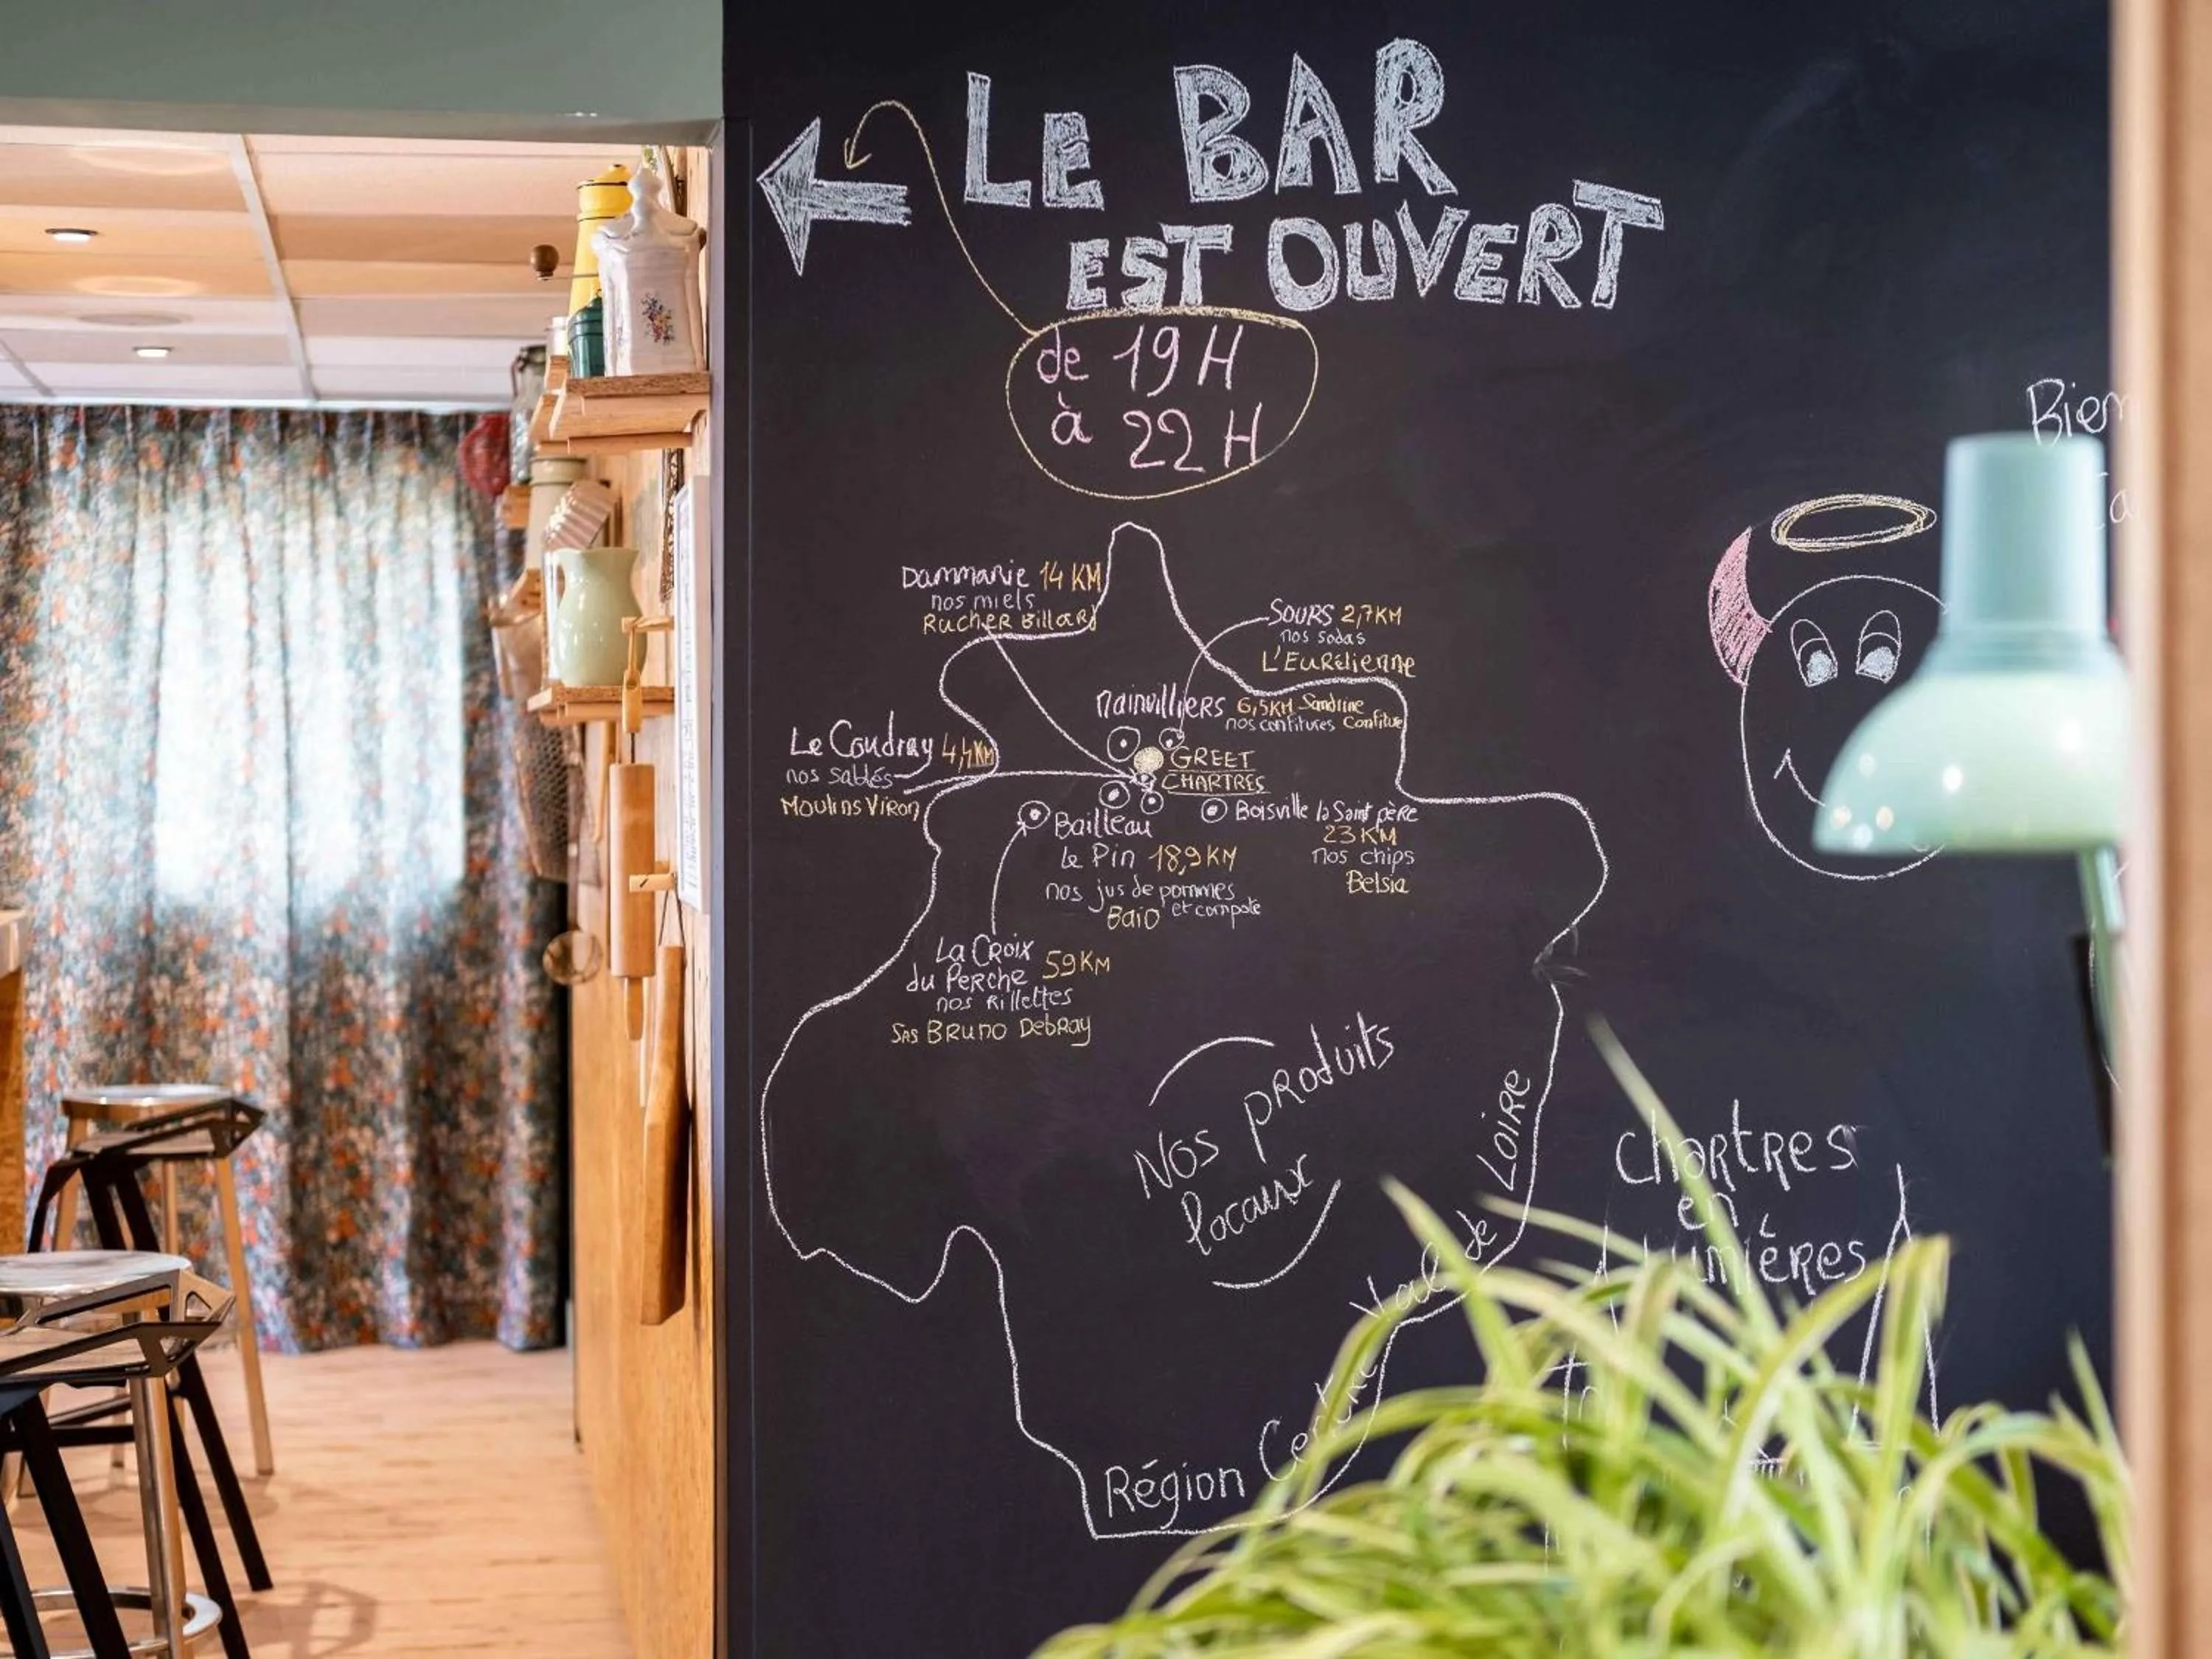 LE BAR
EST OUVERT
de 19H
à 22H
Dammarie 14 KM
nos miels
RucHER Billard
SOURS 2,7KM
nos sodas
L'EuRélienne
Mainvilliers 6,5KM Sandrine
nos confitures Confiture
Le Coudray 4,4KM
nos sablés
Moulins Viron
GREET
CHARTRES
Bailleau
le Pin 18,9KM
nos jus de pommes
et compote
Baio
Boisville la Saint pèRe
23 KM
nos chips
Belsia
La CRoix
du Perche 59KM
nos Rillettes
SAS BRuno DebRay
Nos pRoduits
locaux
Région Centre Val de LoiRE
ChaRtRes
en
Lumières